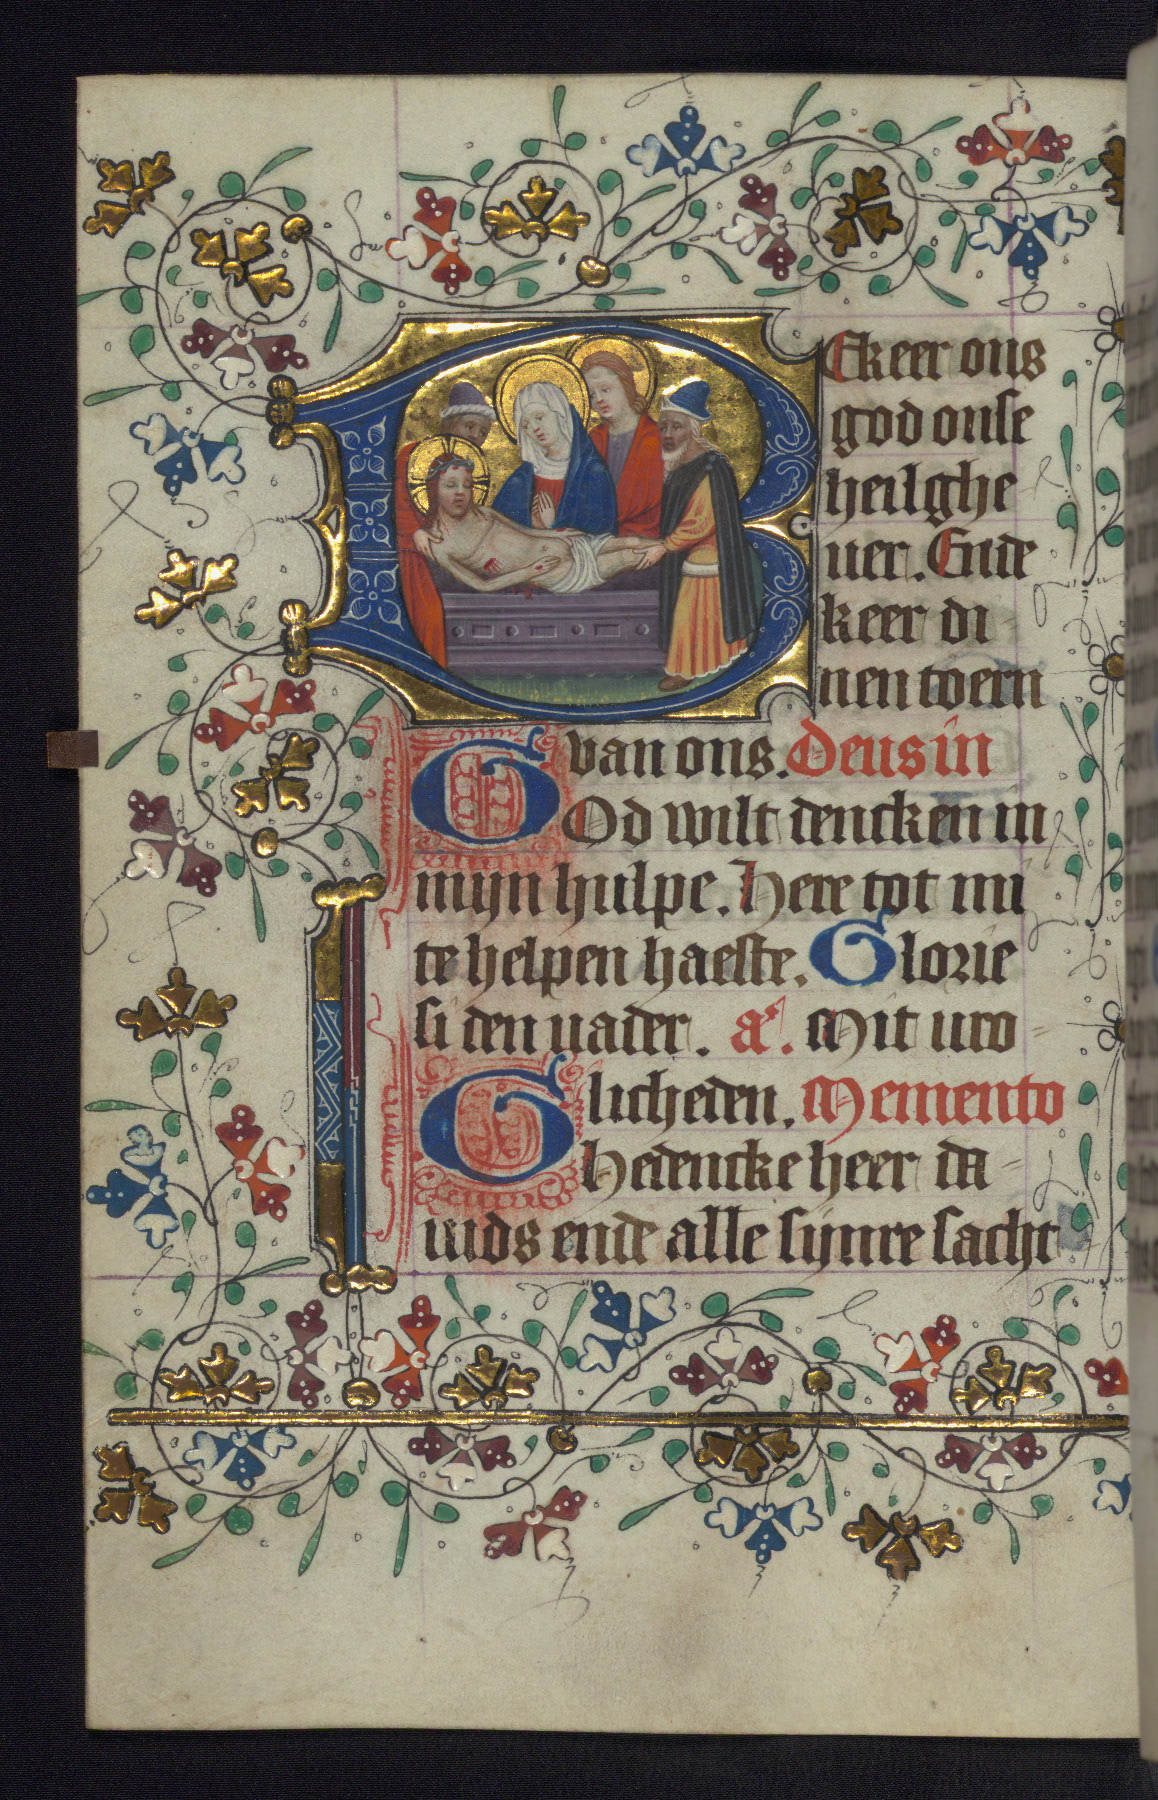 BEkeer ons
god onse
heilghe
uer. Ende
keer di
nen toern
van ons. Deus in
GOd wilt dencken in
mijn hulpe. Here tot mi
te helpen haeste. Glorie
si den uader. a͛. Mit uro
licheden. Memento
Ghedencke heer da
uids ende alle sijnre sacht